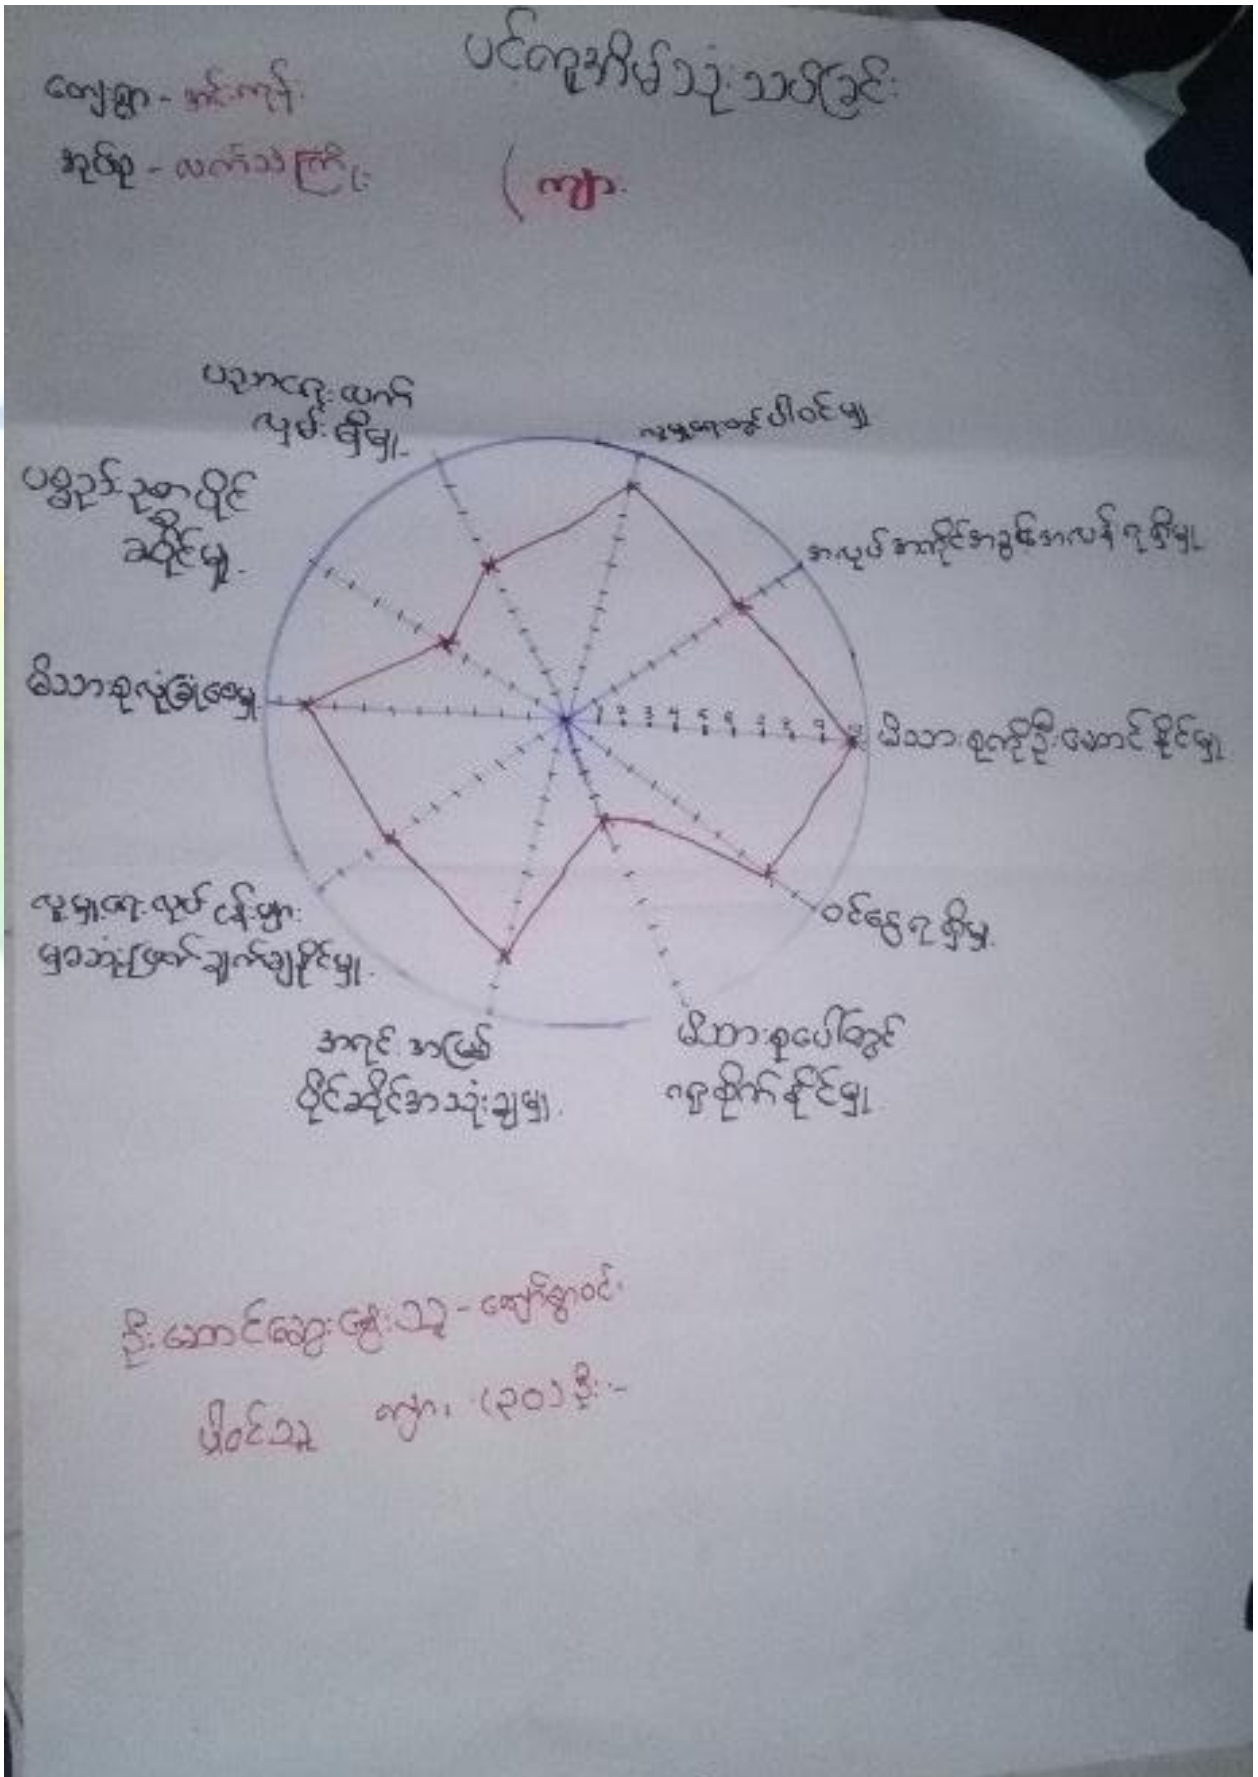 ပင့်ကူအိမ်သုံးသပ်ခြင်း
ကျေးရွာ - အင်းကုန်း
အုပ်စု - လက်သဲကြိုး
(ကျား
ပညာရေးလက်
လှမ်းမှီမှု
လူမှုရေးတွင်ပါဝင်မှု
ပစ္စည်းဥစ္စာပိုင်
ဆိုင်မှု
အလုပ်အကိုင်အခွင့်အလမ်းရရှိမှု
မိသားစုလုံခြုံစေမှု
1 2 3 4 5 6 7 8 9 10
မိသားစုကိုဦးဆောင်နိုင်မှု
လူမှုရေးလုပ်ငန်းများ
မှာဆုံးဖြတ်ချက်ချနိုင်မှု
ဝင်ငွေရရှိမှု
အရင်းအမြစ်
ပိုင်ဆိုင်အသုံးချမှု
မိသားစုပေါ်တွင်
ဂရုစိုက်နိုင်မှု
ဦးဆောင်ဆွေးနွေးသူ - ကျော်စွာဝင်း
ပါဝင်သူ ကျား (၃၀) ဦး -